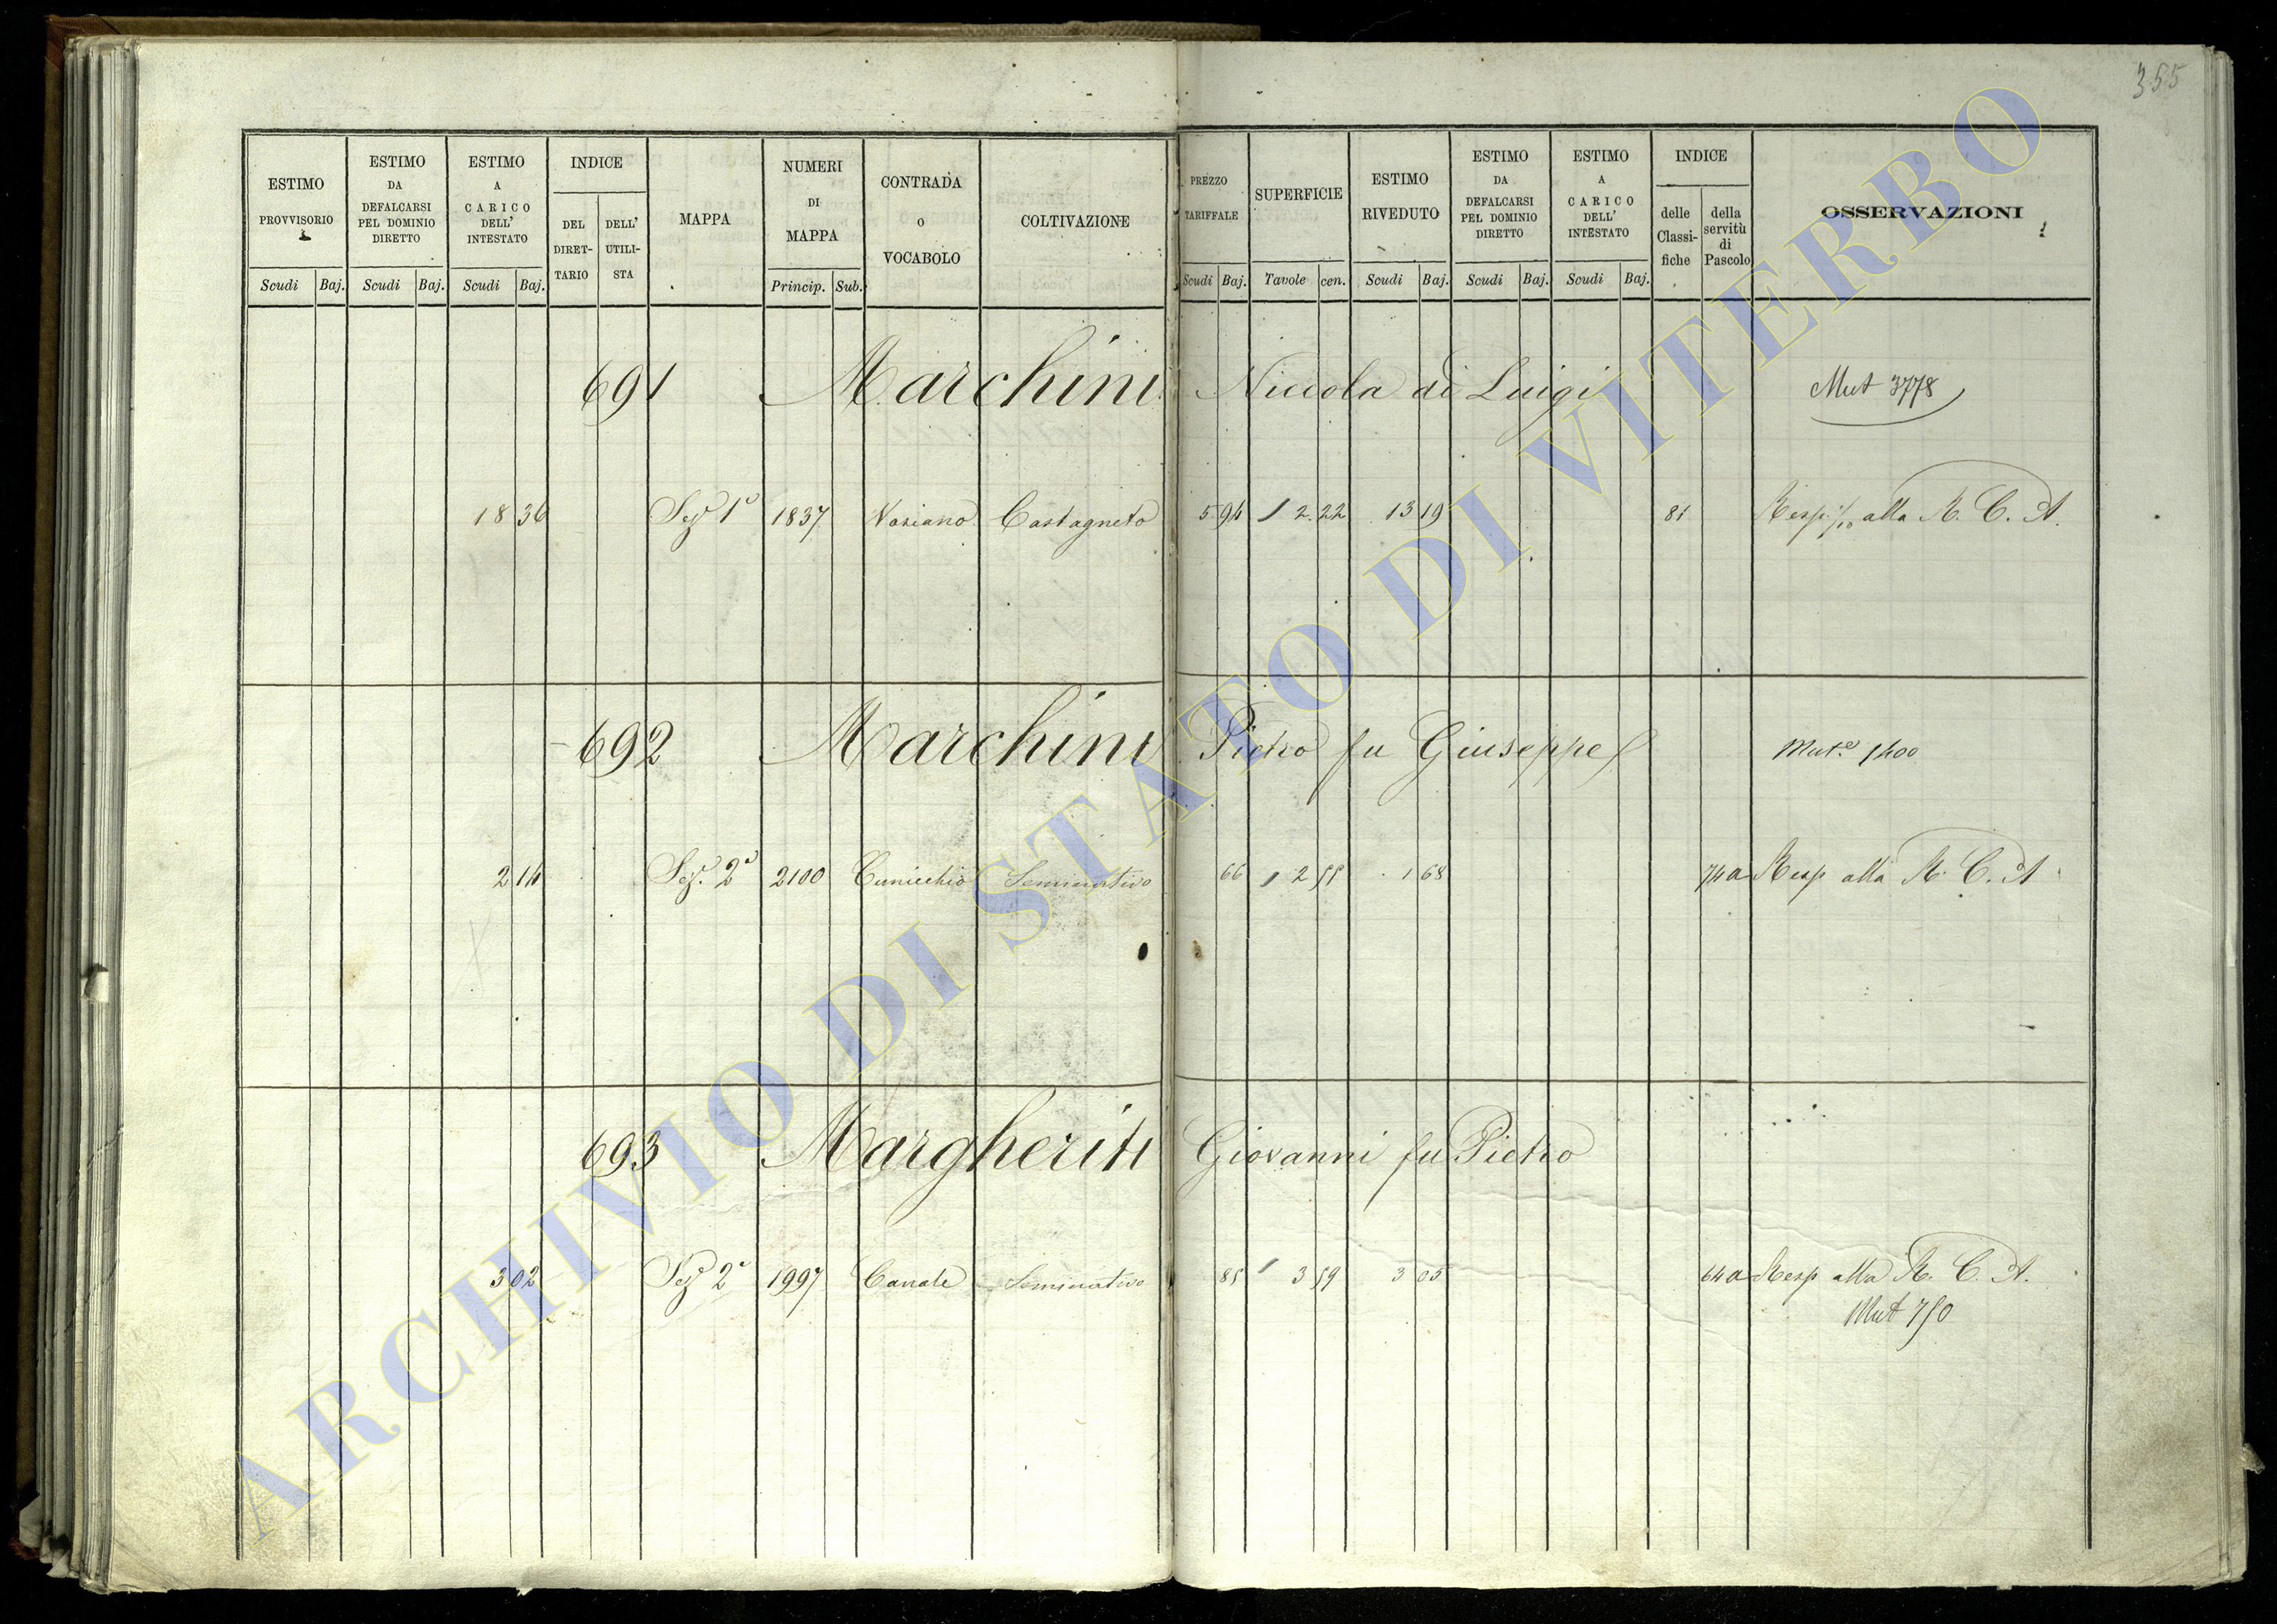 355
ESTIMO PROVVISORIO
ESTIMO DA DEFALCARSI PEL DOMINIO DIRETTO
ESTIMO A CARICO DELL' INTESTATO
INDICE
DEL DIRETTARIO
DELL' UTILISTA
MAPPA
NUMERI DI MAPPA
CONTRADA O VOCABOLO
COLTIVAZIONE
PREZZO TARIFFALE
SUPERFICIE
ESTIMO RIVEDUTO
ESTIMO DA DEFALCARSI PEL DOMINIO DIRETTO
ESTIMO A CARICO DELL' INTESTATO
INDICE
delle Classifiche
della servitù di Pascolo
OSSERVAZIONI
Scudi Baj. Scudi Baj. Scudi Baj. Princip. Sub. Scudi Baj. Tavole cen. Scudi Baj. Scudi Baj. Scudi Baj.
691 Marchini Niccola di Luigi Mut 3778
18 36 Sez 1a 1837 Castagneto 5 94 1 2 22 13 19 81 Resp 1/10 alla R. C. A.
692 Marchini Pietro fu Giuseppe Mut.e 1400
2 14 Sez. 2a 2100 Cunicchio Seminativo 66 1 2 55 1 68 74a Resp alla R. C. A
693 Margheriti Giovanni fu Pietro
3 02 Sez 2a 1997 Canale Seminativo 85 1 3 59 3 05 64a Resp alla R. C. A.
Mut 750
ARCHIVIO DI STATO DI VITERBO